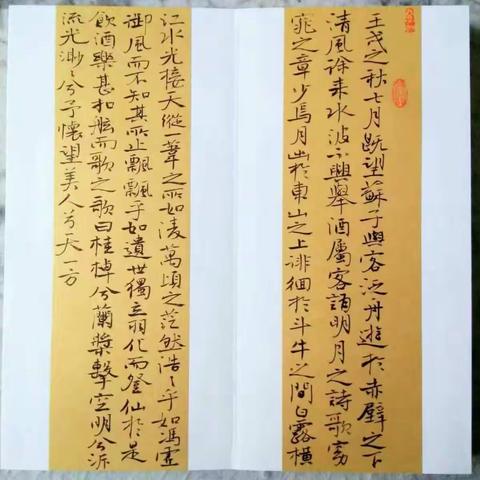 壬戌之秋七月既望蘇子與客泛舟遊於赤壁之下
清風徐来水波不興舉酒屬客誦明月之詩歌窈
窕之章少焉月出於東山之上徘徊於斗牛之間白露橫
江水光接天縱一葦之所如凌萬頃之茫然浩〻乎如馮虛
御風而不知其所止飄飄乎如遺世獨立羽化而登仙於是
飲酒樂甚扣舷而歌之歌曰桂棹兮蘭槳擊空明兮泝
流光渺〻兮予懷望美人兮天一方